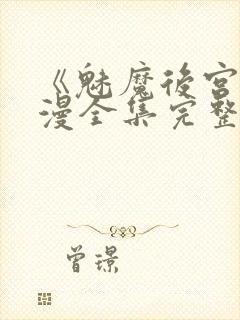 《魅魔后宫
漫全集完整
曾璟